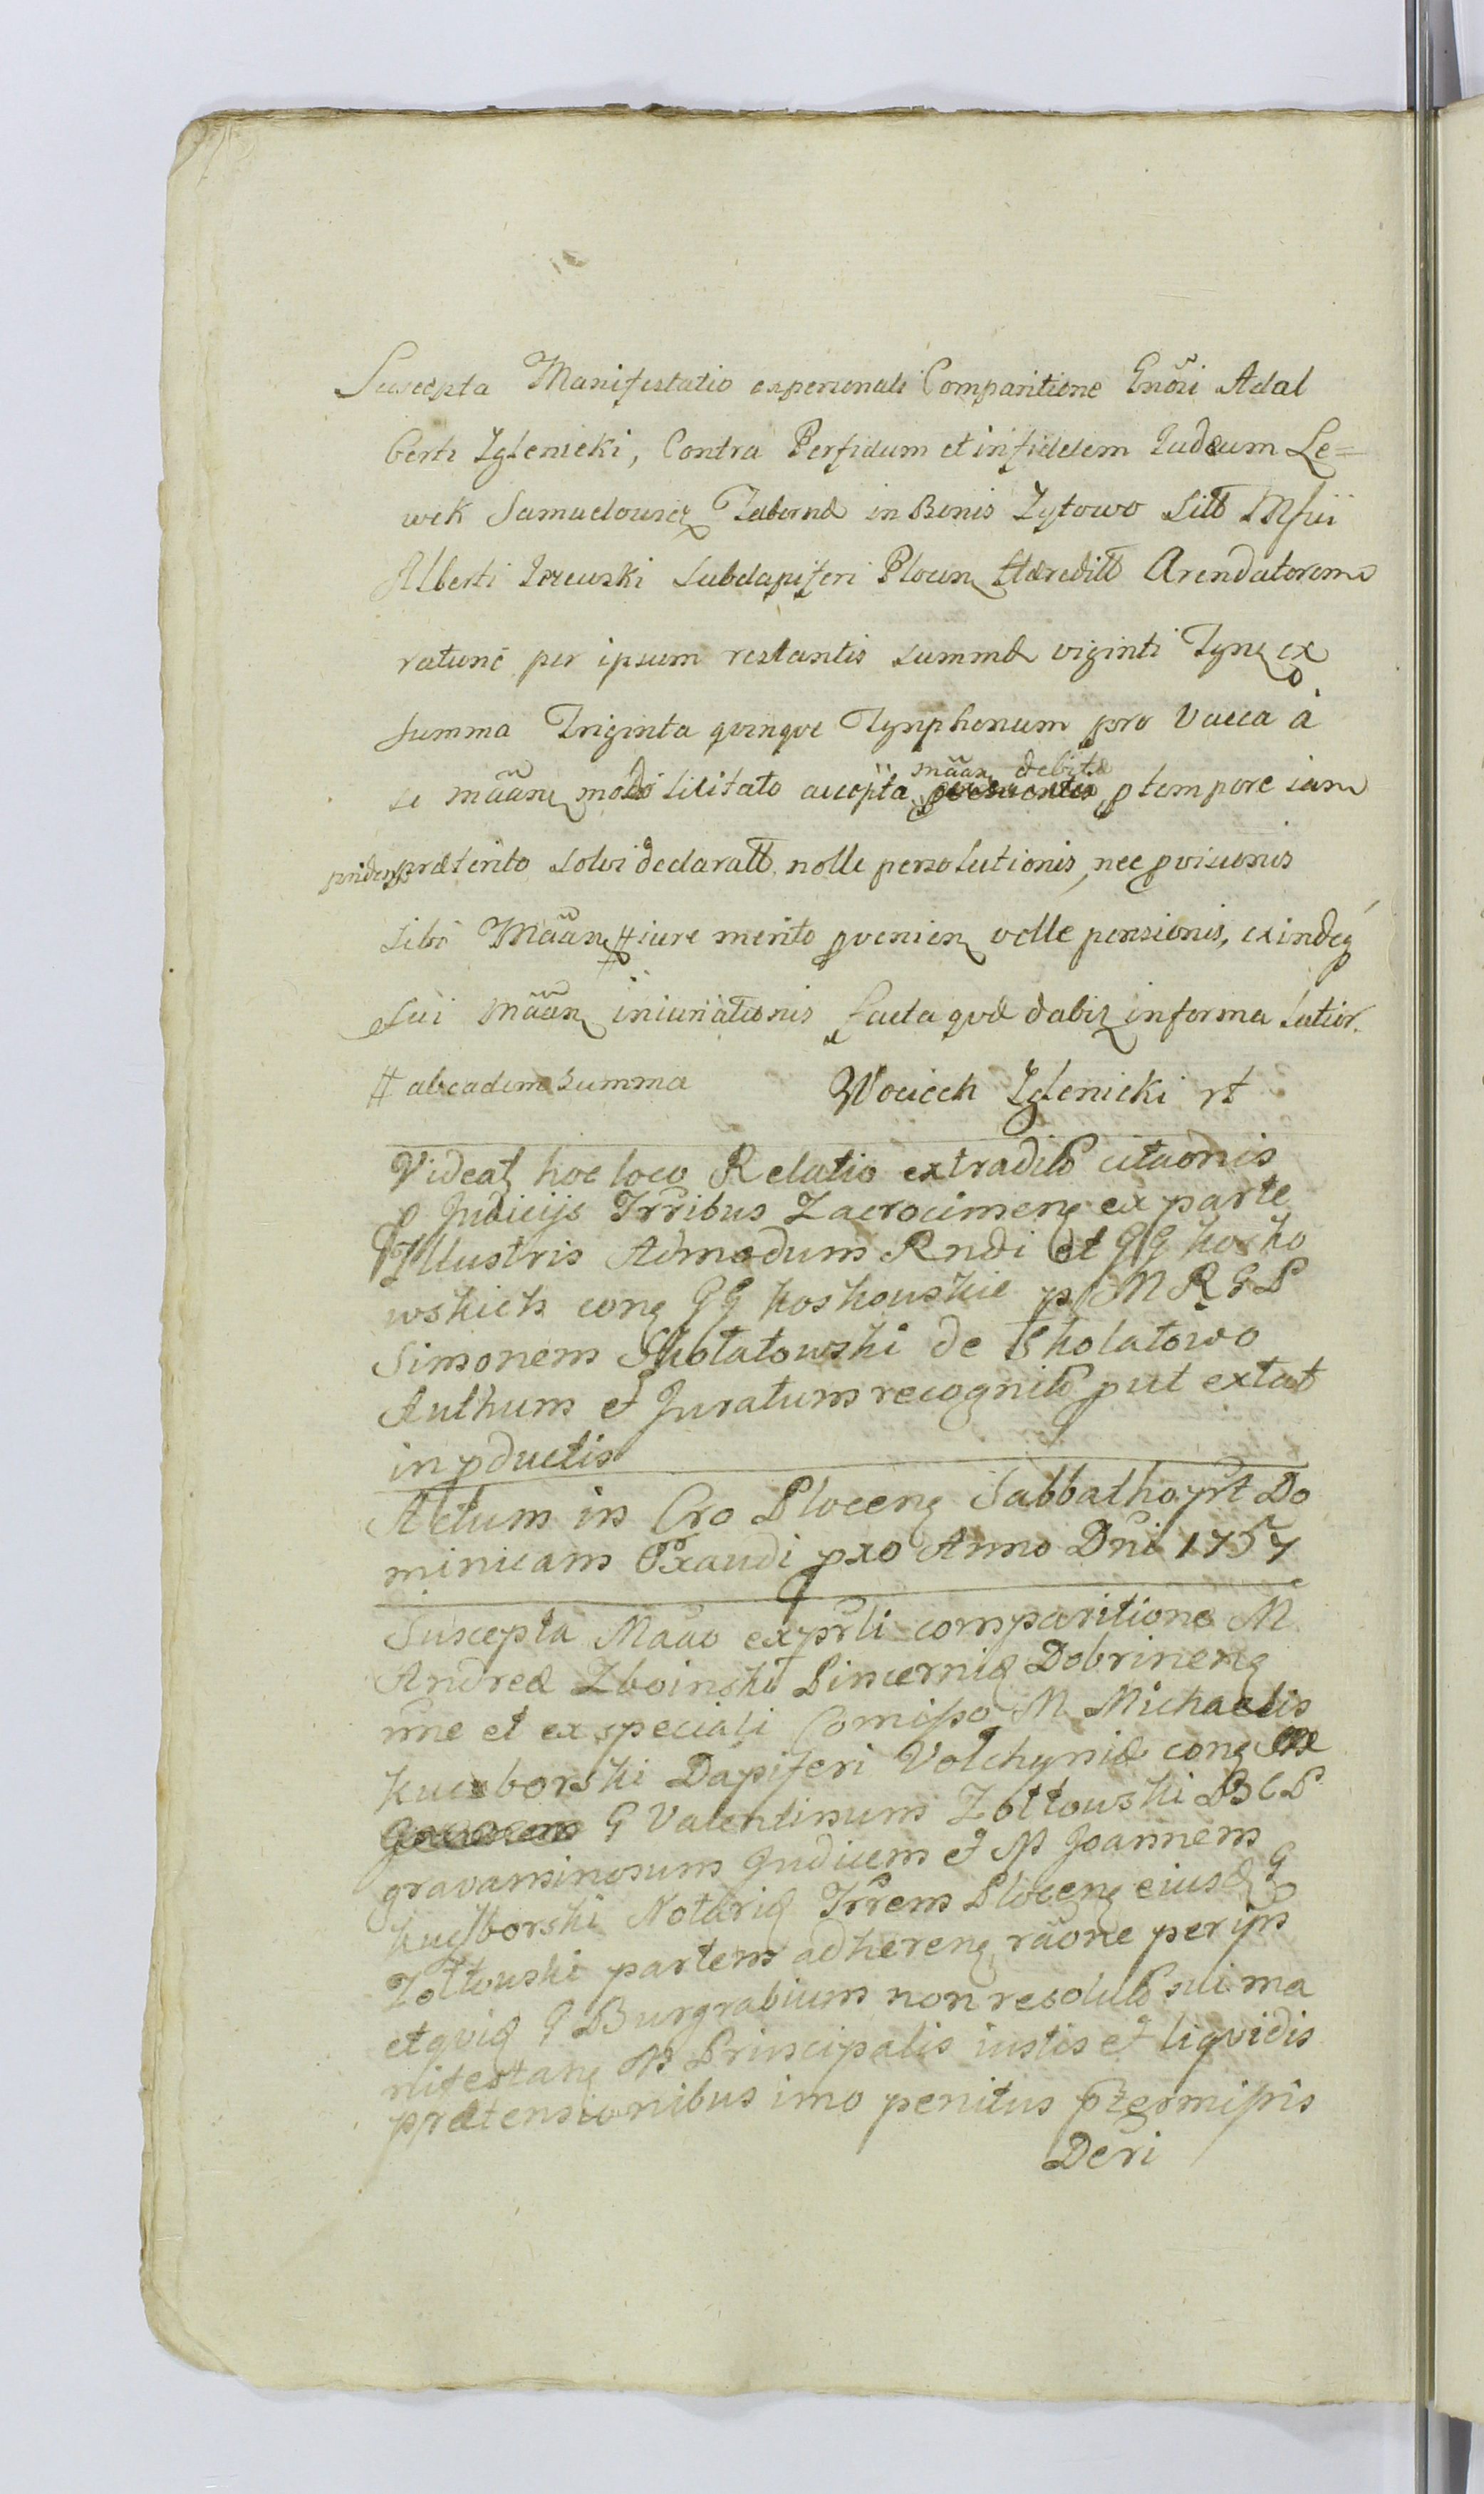 Suscepta Manifestatio expersonali Comparitione Gnõsi Adal
berti Zglenicki, Contra Perfidum et infidelem Iudæum Le=
wek Samuelowicz Tabernæ in Bonis Zytowo sitt Mfici
Alberti Izewski Subdapiferi Plocen Hæreditt Arendatorem
ratune per ipsum restantis summæ viginti Tynf ex
summa Triginta qvinqve Tynphonum pro Vacca à
se mããn modo licitato accepta mããn debitæ p tempore iam
priden præterito solvi declaratt nolle persolutionis, nec pvisionis
sibi Mããn # iure merito pvenien velle pensionis, exindeq
sui mããn iniuriationis facta qvæ dabit informa latior.
# abeadem summa Woiciech Zglenicki rt
Videat hoc loco Relatio extradit citaonis
p Judicijs Trribus Zacrocimen ex parte
Illustris Admodum Rndi et GG Kosko
wskich con GG Koskowskie p M R G P
Simonem Skolatowski de Skolatowo
Authum et Juratum recognit put extat
in pductis
Actum in Cro Plocen Sabbatho pst Do
minicam Exaudi pro Anno Dni 1757
Suscepta Maão exprli comparitione M
Andreæ Zboinski Pincerniæ Dobrinen
nne et ex speciali Comisso M Michaelis
Kuczborski Dapiferi Volchyniæ con
G Valentinum Zołtowski B C P
gravaminosum Judicem et M Joannem
Kuczborski Notariæ Trrem Plocen eiusd G
Zołtowski partem adheren raõne per ips
etqviæ G Burgrabium non resolut sui ma
nifestan M Principalis iustis et liqvidis
prætensionibus imo penitus ptermissis
Deri